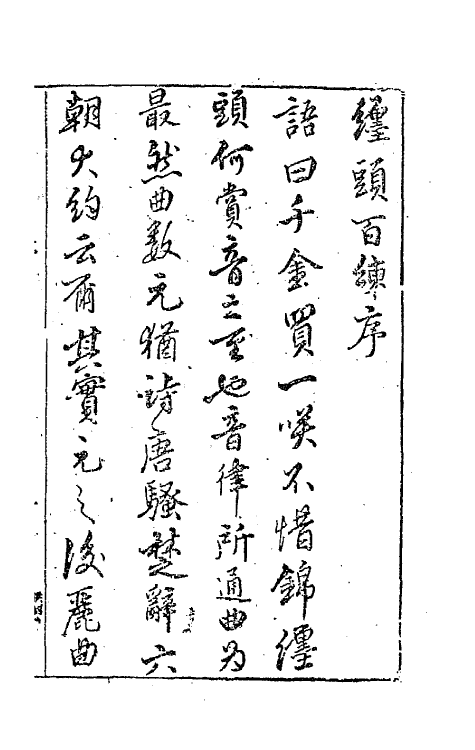 纏頭百練序
語曰千金買一咲不惜錦纏
頭何賞音之至也音律所通曲為
最然曲數元猶詩唐騷楚辭六
朝大約云爾其實元之後麗曲